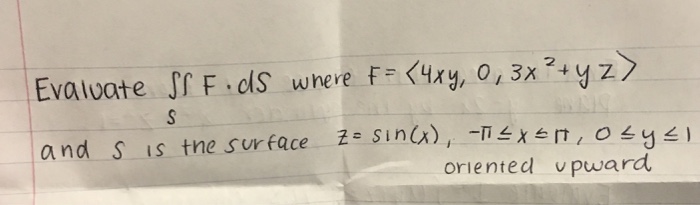 Evaluate ∬ F · dS where F = ⟨4xy, 0, 3x² + yz⟩
S
and S is the surface z = sin(x), -π ≤ x ≤ π, 0 ≤ y ≤ 1
oriented upward